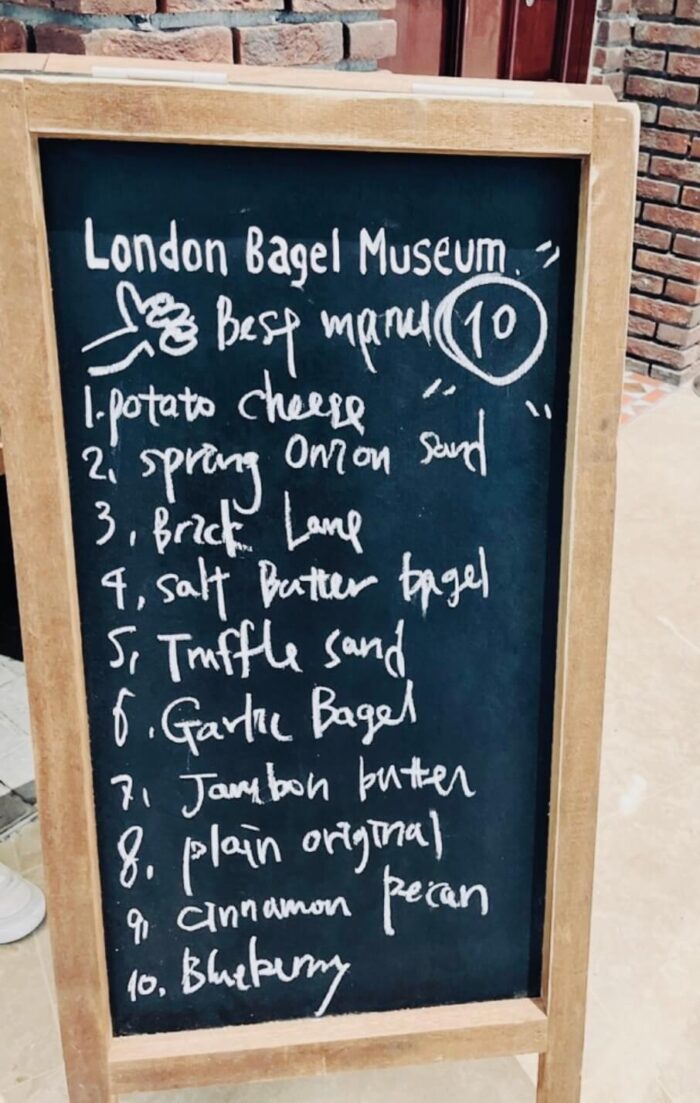 London Bagel Museum.
Best menu 10
1. potato cheese
2. spring onion sand
3. Brick Lane
4. salt Butter bagel
5. Truffle sand
6. Garlic Bagel
7. Jambon butter
8. plain original
9. cinnamon pecan
10. Blueberry